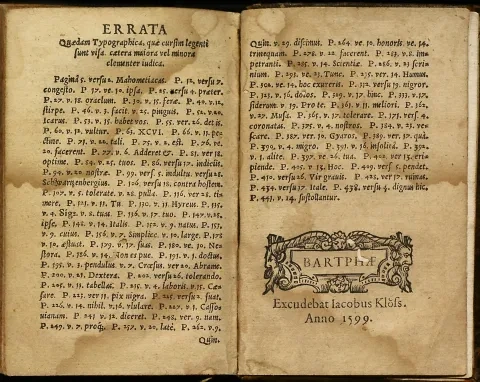 ERRATA
Quædam Typographica, quæ cursim legenti
sunt visa. cætera maiora vel minora
clementer iudica.
Pagina 5. versu 2. Mahometicas. P. 12. versu 7.
congesto. P. 17. ve. 10. ipsa. P. 25. versu 4. prater.
P. 27. v. 18. oraclum. P. 30. v. 15. feræ. P. 40. v. 12.
stirpe. P. 46. v. 3. facit v. 25. pinguis. P. 52. v. 20.
Icarus. P. 53. v. 15. habet vos. P. 55. ver. 26. det is.
P. 60. v. 12. vultur. P. 63. XCVI. P. 66. v. 11. pe-
P. 73. v. 22. tali. P. 75. v. 2. est. P. 76. ve.
20. facerent. P. 77. v. 6. Adderet &. P. 83. ver 18.
optime. P. 84. v. 25. tuos. P. 86. versu 17. indiciis.
P. 94. v. 22. nostræ. P. 99. vers. 5. indultu. versu 21.
Schwartzenbergius. P. 126. versu 18. contra hostem.
P. 107. v. 5. tolerate. v. 28. pulla. P. 116. ver 28. ti-
mere. P. 121. v. 11. Tu. P. 130. v. 11. Hyreus. P. 135.
v. 4. Sige. v. 8. tua. P. 136. v. 17. tuo. P. 147. v. 25.
ipse. P. 148. v. 14. Italis. P. 152. v. 9. natus. P. 157.
v. 9. cutus. P. 156. v. 7. Simplice. v. 10. large. P. 178
v. 10. æstuet. P. 179. v. 17. suas. P. 182. ve. 10. Ne-
stora. P. 186. v. 14. Non es pue. P. 191. v. 1. doctus.
P. 195. v. 3. pendulus. v. 7. Cræsus. ver 20. Abrane.
P. 200. v. 25. Dextera. P. 202. versu 26. tolerando.
P. 205. v. 11. tabellæ. P. 215. v. 4. laboris. v. 15. Cæ-
sare. P. 223. ver 11. pix nigra. P. 225. versu 2. suat.
P. 226. v. 14. nihil. v. 16. viulare. P. 227. v. 1. Cassov
uianam. P. 241. v. 12. diceret. P. 248. ver. 9. nam.
P. 249. v. 7. proq;. P. 257. v. 20. latè. P. 262. v. 9.
Quin.
Quin. v. 29. distinut. P. 264. ve. 10. honoris. ve. 14.
trinequam. P. 278. v. 22. facerent. P. 283. v. 8. im-
petranti. P. 285. v. 14. Scientiæ. P. 286. v. 23. scri-
nium. P. 293. ve. 23. Tunc. P. 295. ver. 14. Humus.
P. 302. ve. 14. hoc exureris. P. 312. versu 19. nigror.
P. 323. v. 16. dolos. P. 329. v. 17. hinc. P. 333. v. 17.
siderum v. 19. Pro te. P. 363. v. 11. meliori. P. 362.
v. 27. Musæ. P. 365. v. 17. tolerare. P. 371. vers. 4.
coronatas. P. 375. v. 4. nostros. P. 384. v. 23. ve-
scare. P. 387. ver. 10. Gyaros. P. 389. ver. 17. qui.
P. 390. v. 4. migro. P. 391. v. 16. insolita. P. 392.
v. 1. alite. P. 397. ve. 26. tua. P. 402. ver 13. eri-
piende. P. 405. v. 15. Hoc. P. 420. vers. 5. pendet.
P. 430. versu 26. Vir grauis. P. 428. ver 17. ruinas.
P. 434. versu 17. itale. P. 438. versu 4. dignum hic.
P. 441. v. 14. sustollantur.
BARTPHÆ
Excudebat Iacobus Klöss.
Anno 1599.